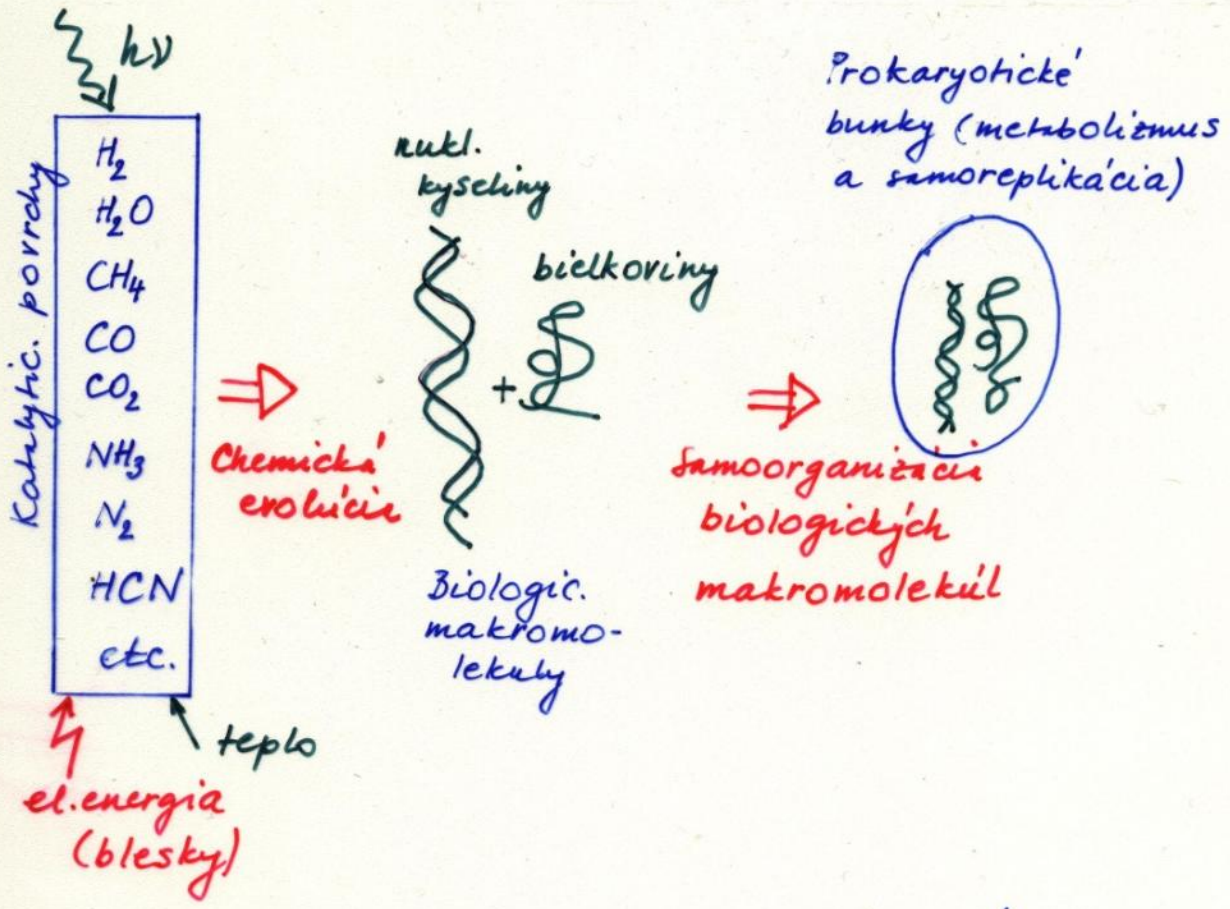 hν
Katalytic. povrchy
H₂
H₂O
CH₄
CO
CO₂
NH₃
N₂
HCN
etc.
el.energia
(blesky)
teplo
Chemická
evolúcia
nukl.
kyseliny
+
bielkoviny
Biologic.
makromo-
lekuly
Samoorganizácia
biologických
makromolekúl
Prokaryotické
bunky (metabolizmus
a samoreplikácia)